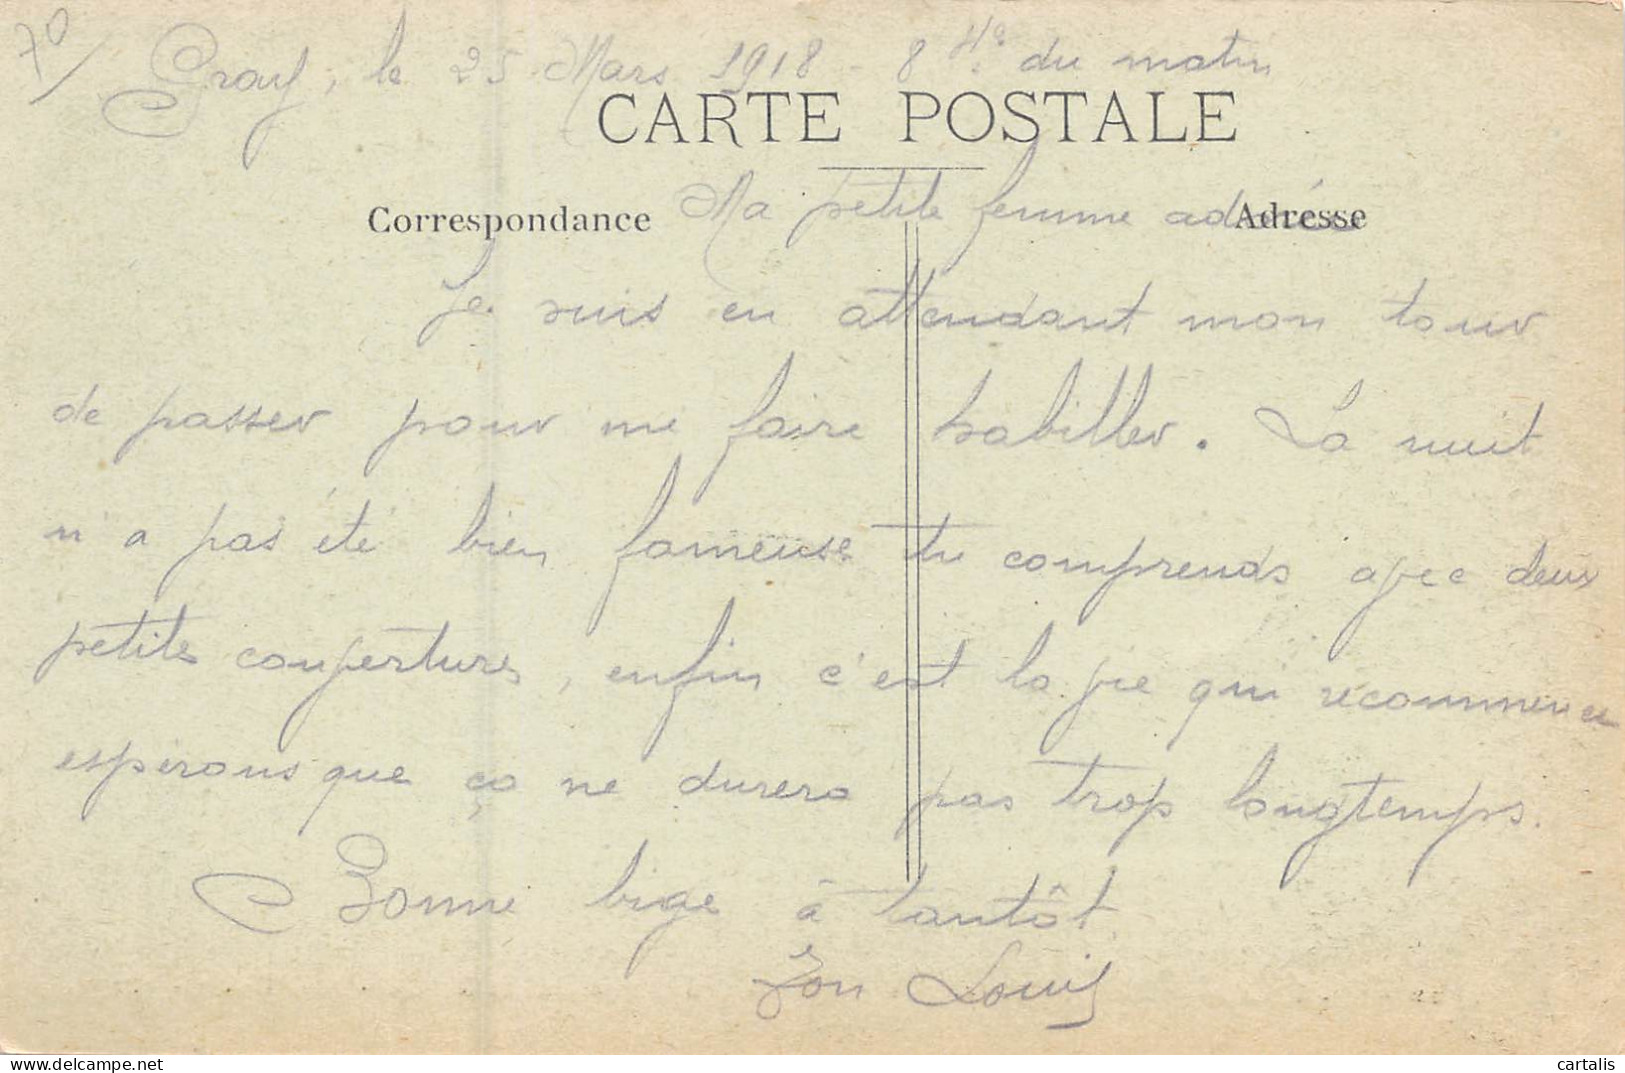 70/
Gray, le 25 Mars 1918 - 8 Hes du matin
CARTE POSTALE
Correspondance Ma petite femme adorée Adresse
Je suis en attendant mon tour
de passer pour me faire habiller. La nuit
n'a pas été bien fameuse tu comprends avec deux
petites couvertures, enfin c'est la vie qui recommence
esperons que ça ne durera pas trop longtemps.
Bonne bige à tantôt
Ton Louis
cartalis